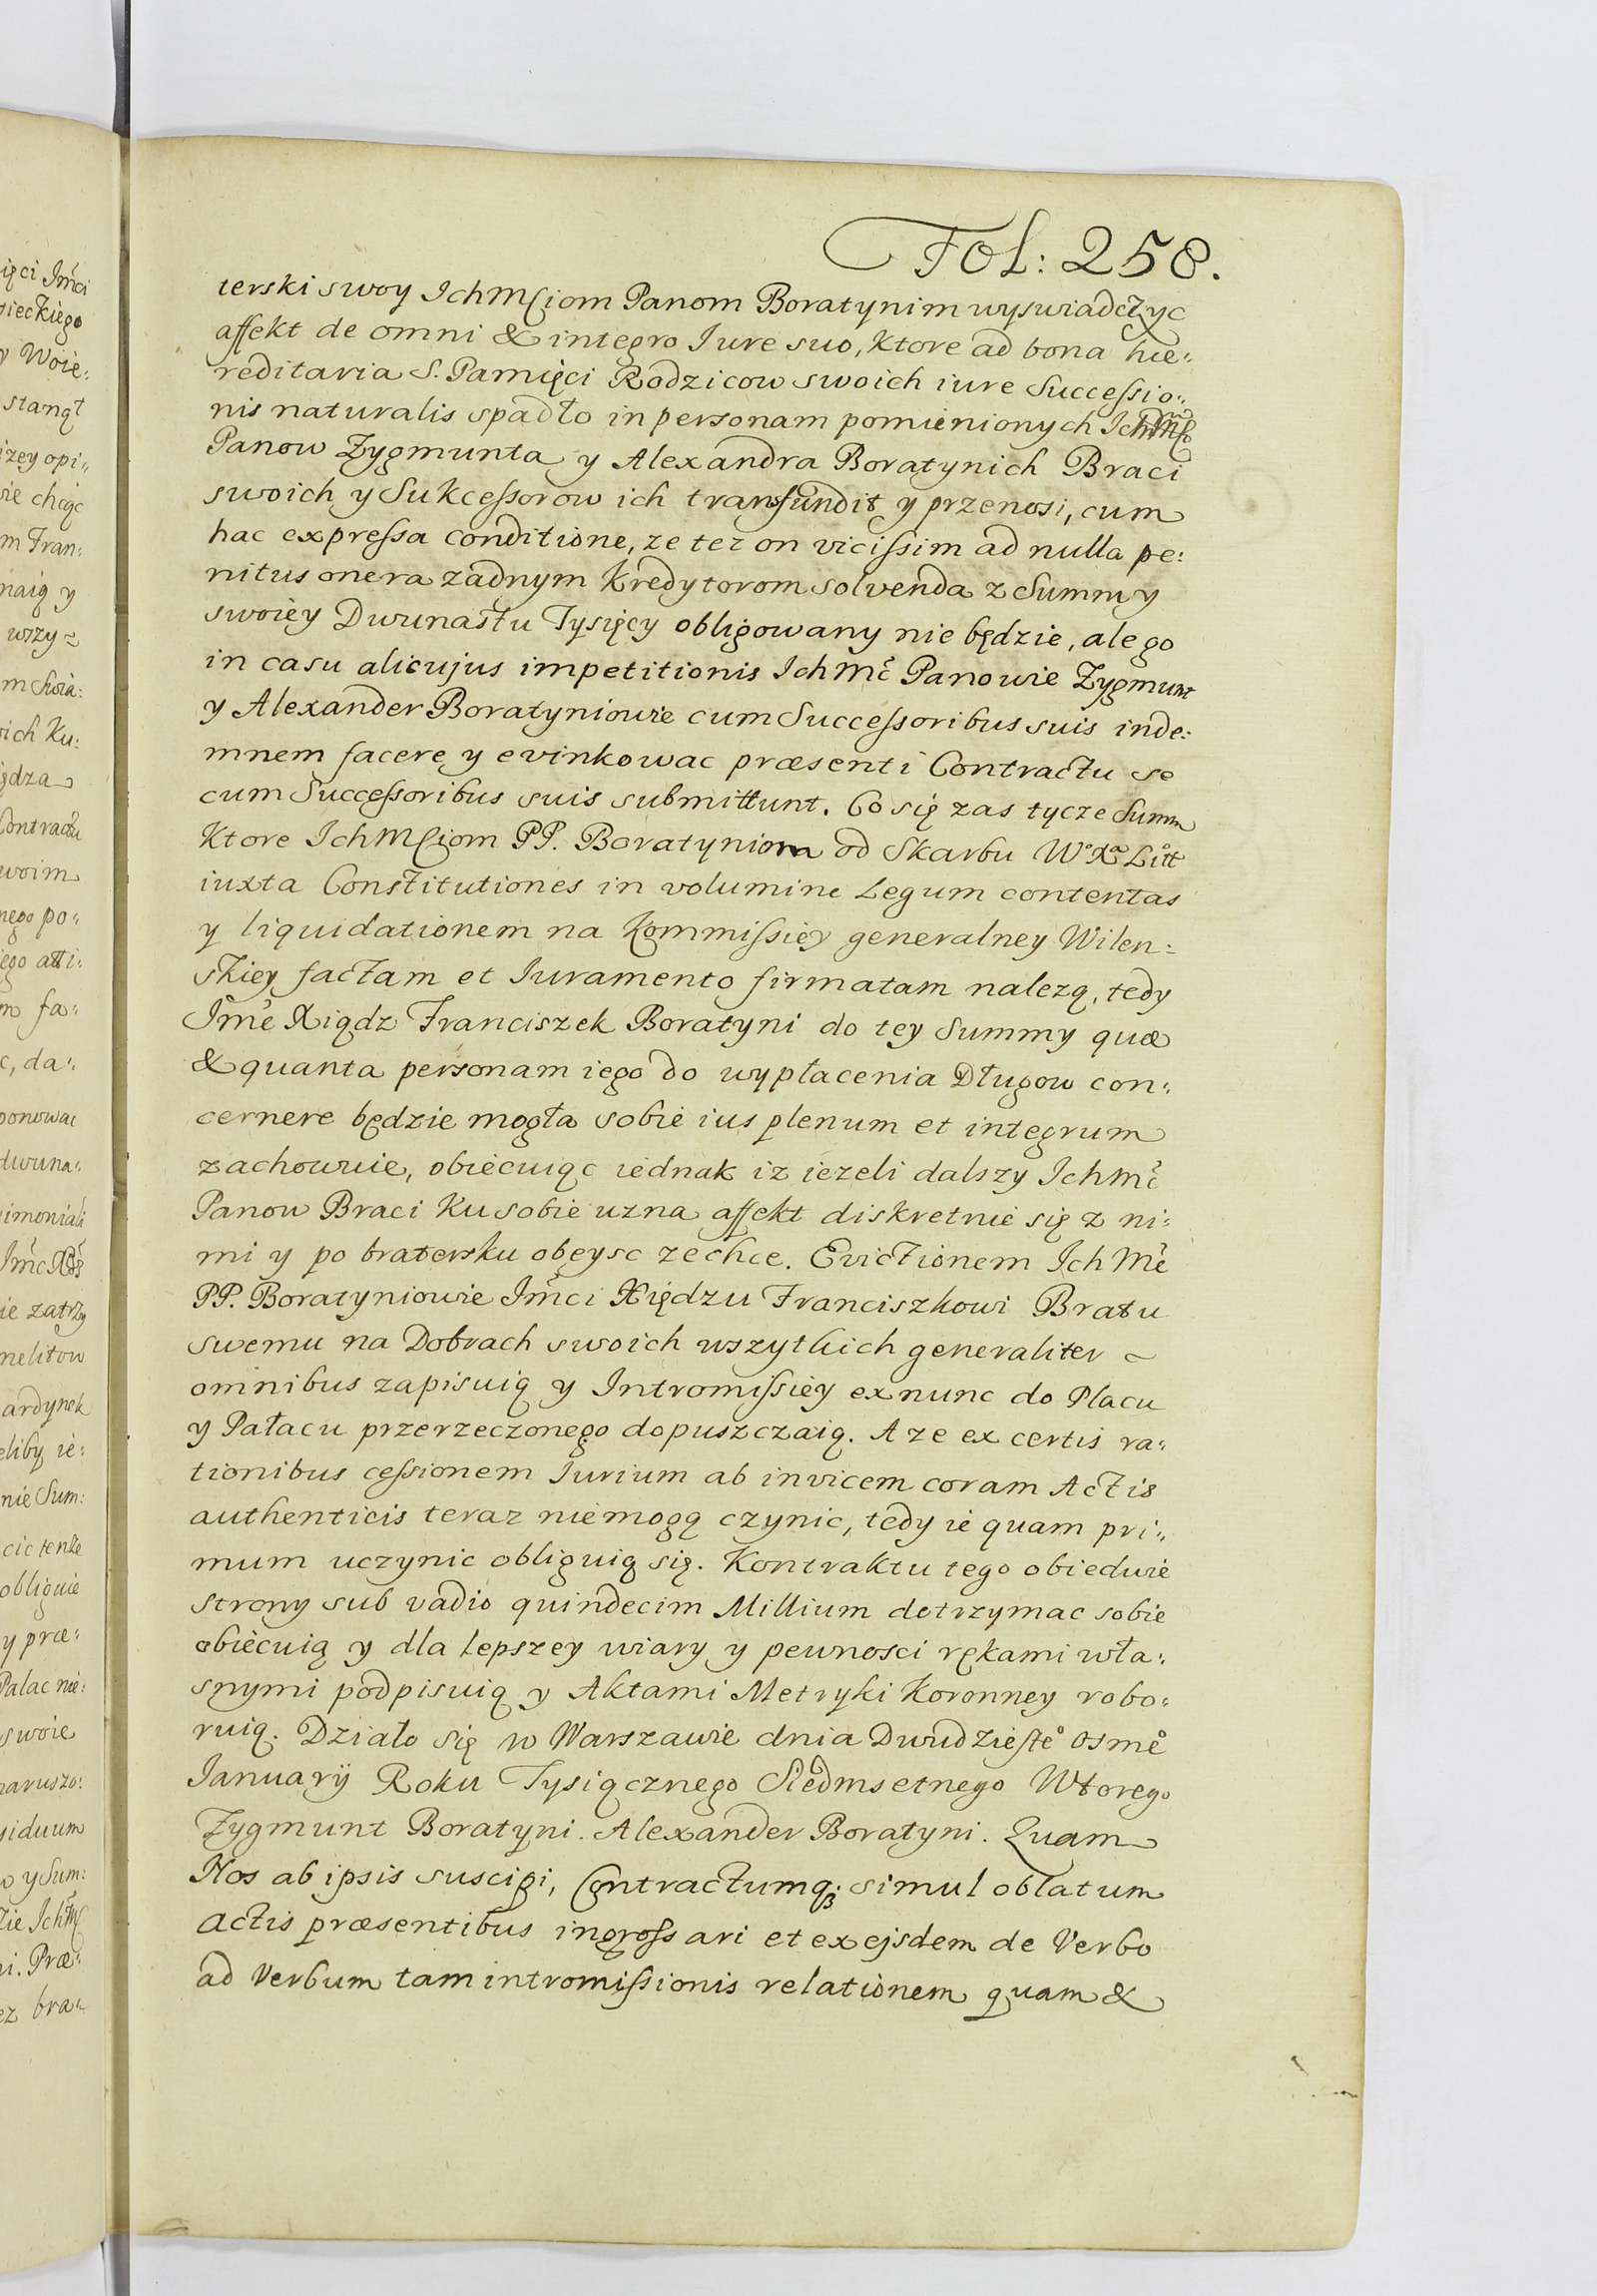 Fol: 258.
terski swoy IchMciom Panom Boratynim wyswiadczyc
affekt de omni & integro Iure suo, ktore ad bona hæ:
reditaria S. Pamięci Rodzicow swoich iure Successio:
nis naturalis spadło in personam pomienionych IchMć
Panow Zygmunta y Alexandra Boratynich Braci
swoich y Sukcessorow ich transfundit y przenosi, cum
hac expressa conditione, ze tez on vicissim ad nulla pe:
nitus onera zadnym kredytorom solvenda z Summy
swoiey Dwunastu Tysięcy obligowany nie będzie, ale go
in casu alicujus impetitionis IchMć Panowie Zygmunt
y Alexander Boratyniowie cum Successoribus suis inde:
mnem facere y evinkowac præsenti Contractu se
cum Successoribus suis submittunt. Co się zas tycze Summ
ktore IchMciom PP. Boratyniom od Skarbu Wo Xa Litt
iuxta Constitutiones in volumine Legum contentas
y liquidationem na Kommissiey generalney Wilen:
skiey factam et Iuramento firmatam nalezą, tedy
Imć Xiądz Franciszek Boratyni do tey Summy quæ
& quanta personam iego do wypłacenia Długow con:
cernere będzie mogła sobie ius plenum et integrum
zachowuie, obiecuiąc iednak iz iezeli dalszy IchMć
Panow Braci ku sobie uzna affekt diskretnie się z ni:
mi y po bratersku obeysc zechce. Evictionem IchMć
PP. Boratyniowie Imci Xiędzu Franciszkowi Bratu
swemu na Dobrach swoich wszytkich generaliter
omnibus zapisuią y Intromissiey ex nunc do Placu
y Pałacu przerzeczonego dopuszczaią. A ze ex certis ra:
tionibus cessionem Iurium ab invicem coram Actis
authenticis teraz niemogą czynic, tedy ie quam pri:
mum uczynic obliguią się. Kontraktu tego obiedwie
strony sub vadio quindecim Millium dotrzymac sobie
obiecuią y dla lepszey wiary y pewnosci rękami wła:
snymi podpisuią y Aktami Metryki Koronney robo:
ruią. Działo się w Warszawie dnia Dwudziesteo osmeo
Ianuarij Roku Tysiącznego Siedmsetnego Wtorego
Zygmunt Boratyni. Alexander Boratyni. Quam
Nos ab ipsis suscipi, Contractumq; simul oblatum
Actis præsentibus ingrossari et ex ejsdem de Verbo
ad Verbum tam intromissionis relationem quam &